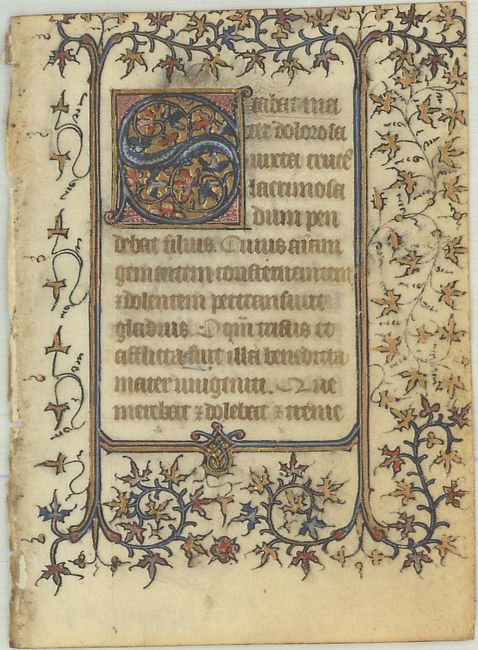 Stabat ma
ter dolorosa
iuxta crucē
lacrimosa
dum pen
debat filius. Cuius aīam
gementem constristantem
⁊ dolentem pertransivit
gladius. O qm̄ tristis et
afflicta fuit illa benedicta
mater unigeniti. Que
merebat ⁊ dolebat ⁊ tremē